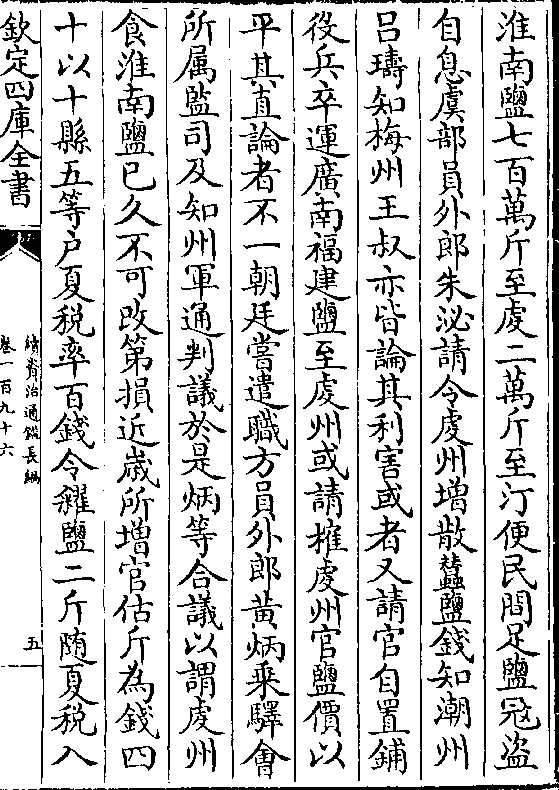 淮南鹽七百萬斤至䖍二萬斤至汀便民間足鹽冦盜
自息虞部員外郎朱泌請令䖍州增散蠶鹽錢知潮州
吕璹知梅州王叔亦皆論其利害或者又請官自置鋪
役兵卒運廣南福建鹽至䖍州或請榷䖍州官鹽價以
平其直論者不一朝廷嘗遣職方員外郎黄炳乘驛㑹
所屬監司及知州軍通判議於是炳等合議以謂䖍州
食淮南鹽已久不可改第損近嵗所增官估斤為錢四
十以十縣五等户夏税率百錢令糴鹽二斤随夏税入
欽定四庫全書
續資治通鑑長編
卷一百九十六
五